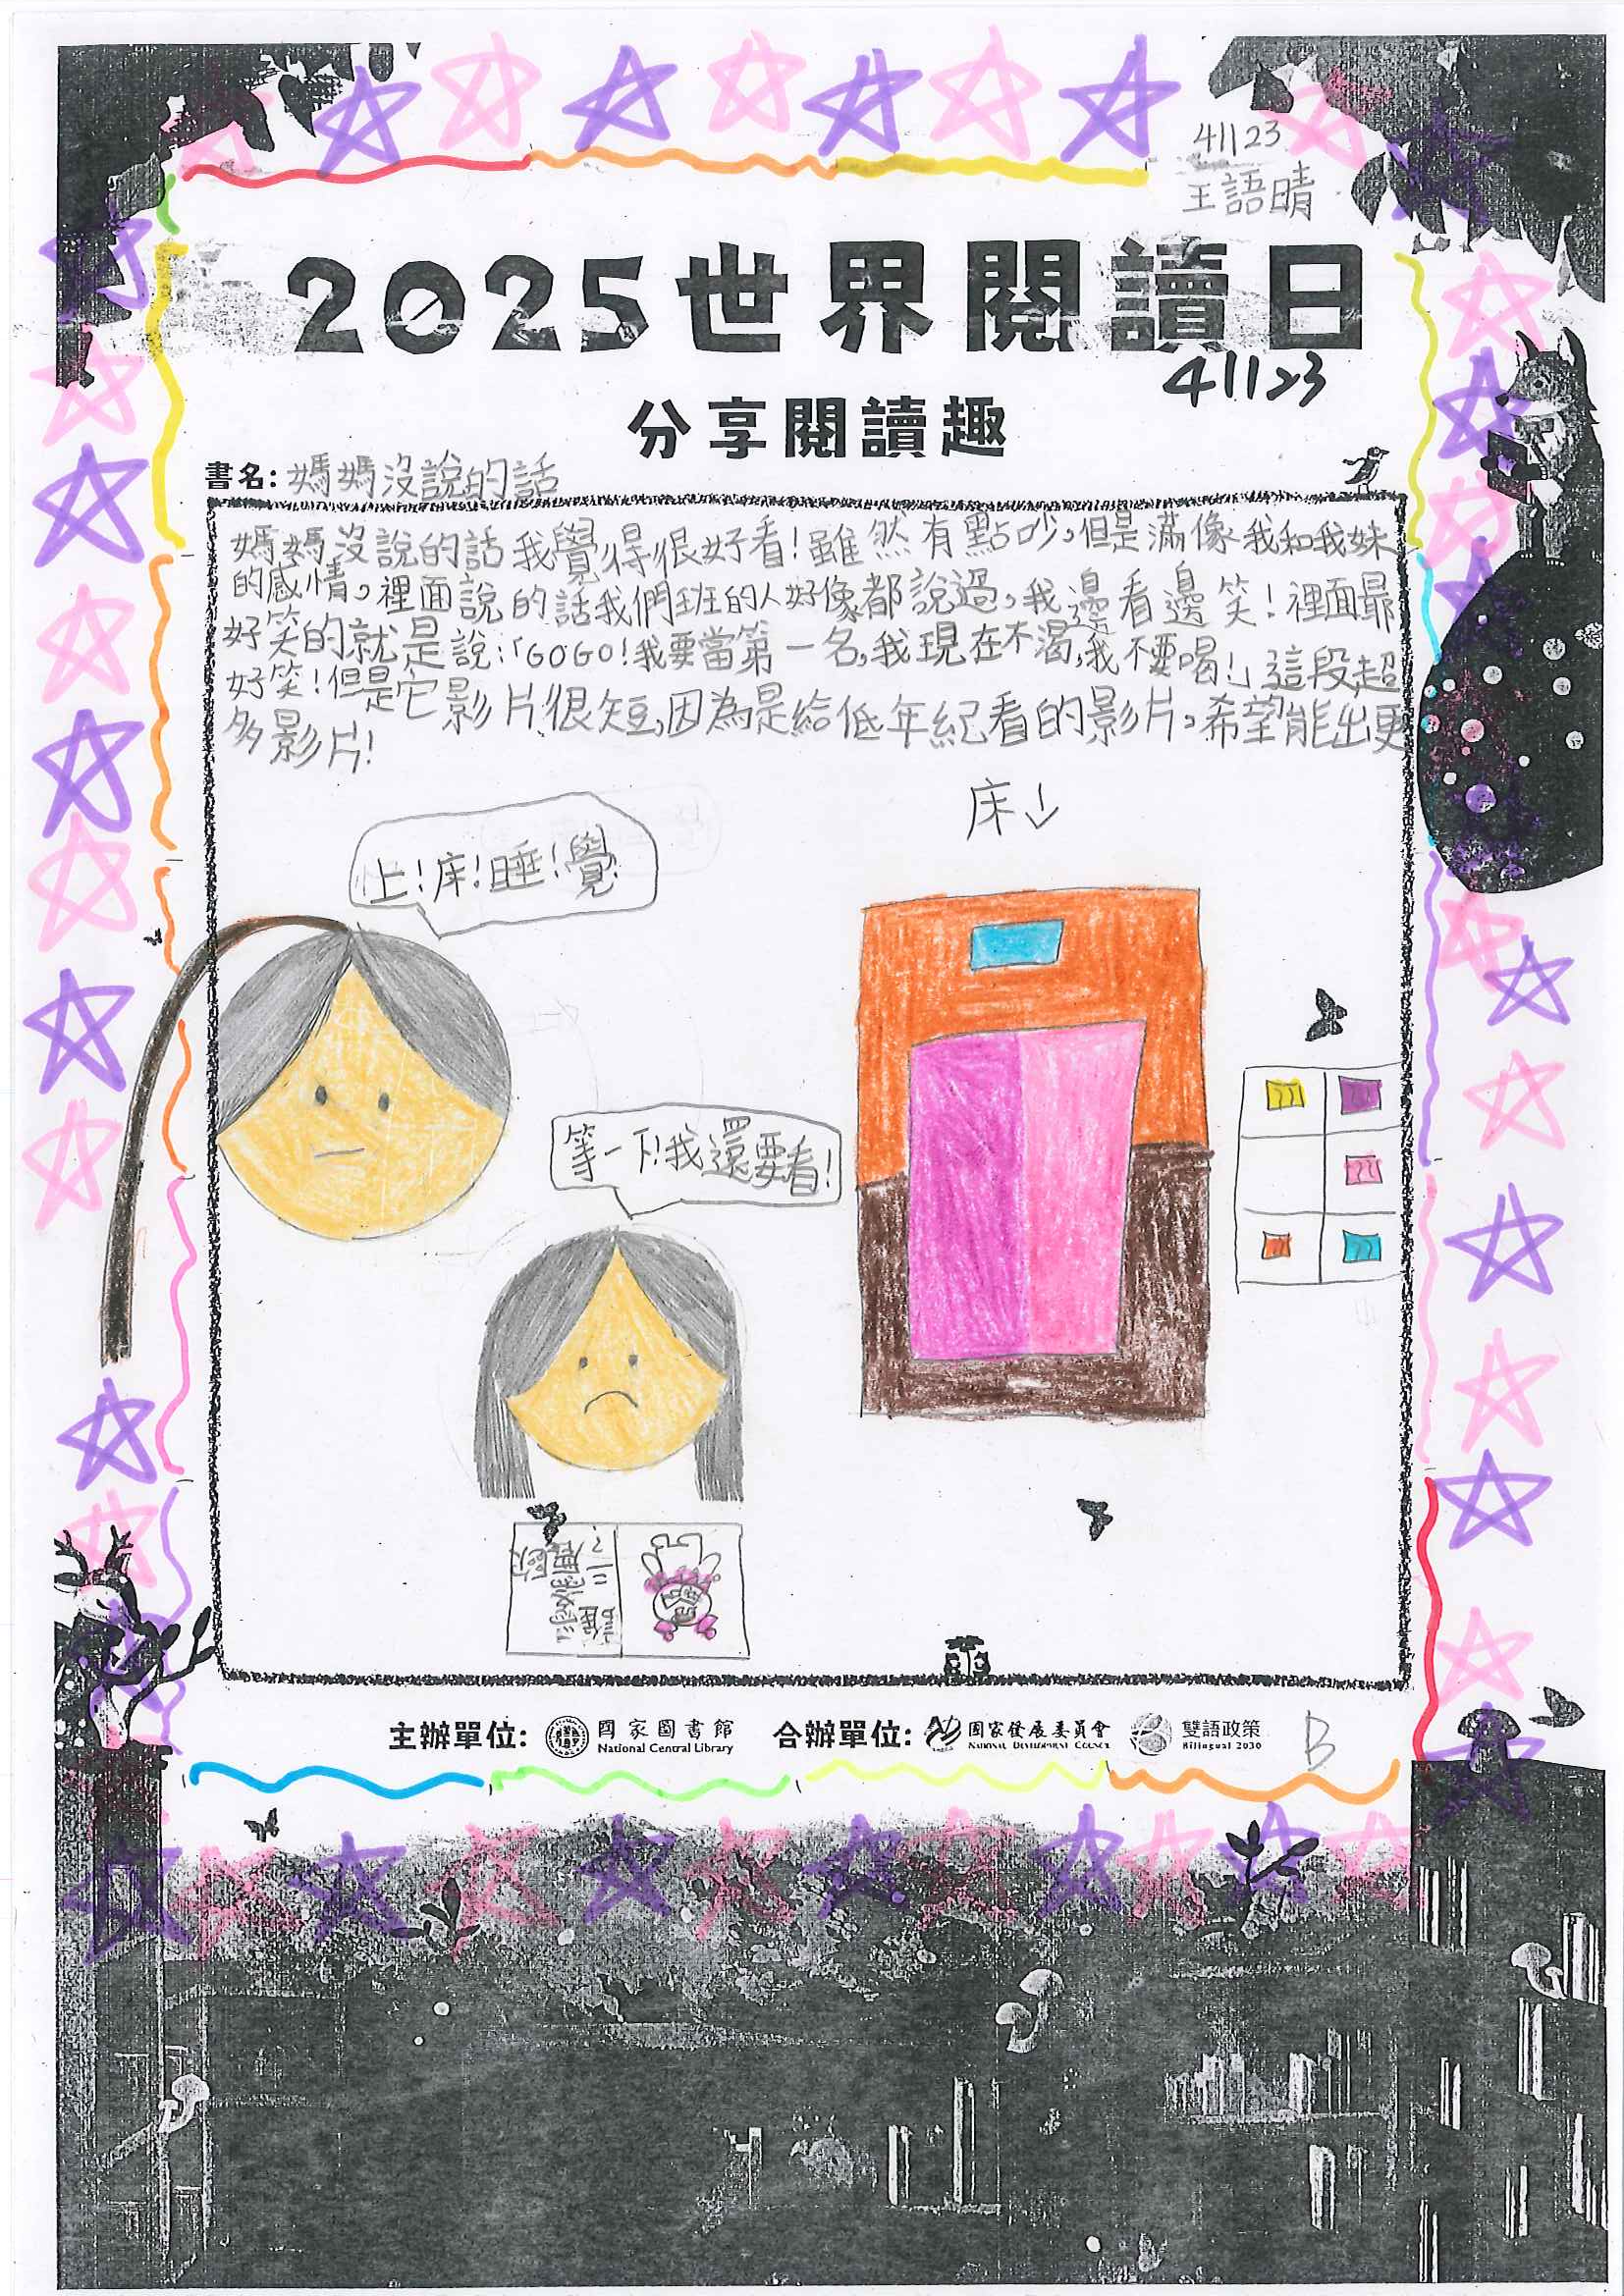 41123
王語晴
2025世界閱讀日
41123
分享閱讀趣
書名：媽媽沒說的話
媽媽沒說的話我覺得很好看！雖然有點吵，但是滿像我和我妹
的感情，裡面說的話我們班的人好像都說過，我邊看邊笑！裡面最
好笑的就是說：「GOGO！我要當第一名，我現在不渴，我不要喝！」這段超
好笑！但是它影片很短，因為是給低年紀看的影片，希望能出更
多影片！
床↓
上！床！睡！覺
等一下！我還要看！
主辦單位：國家圖書館
National Central Library
合辦單位：國家發展委員會
National Development Council
雙語政策
Bilingual 2030
B